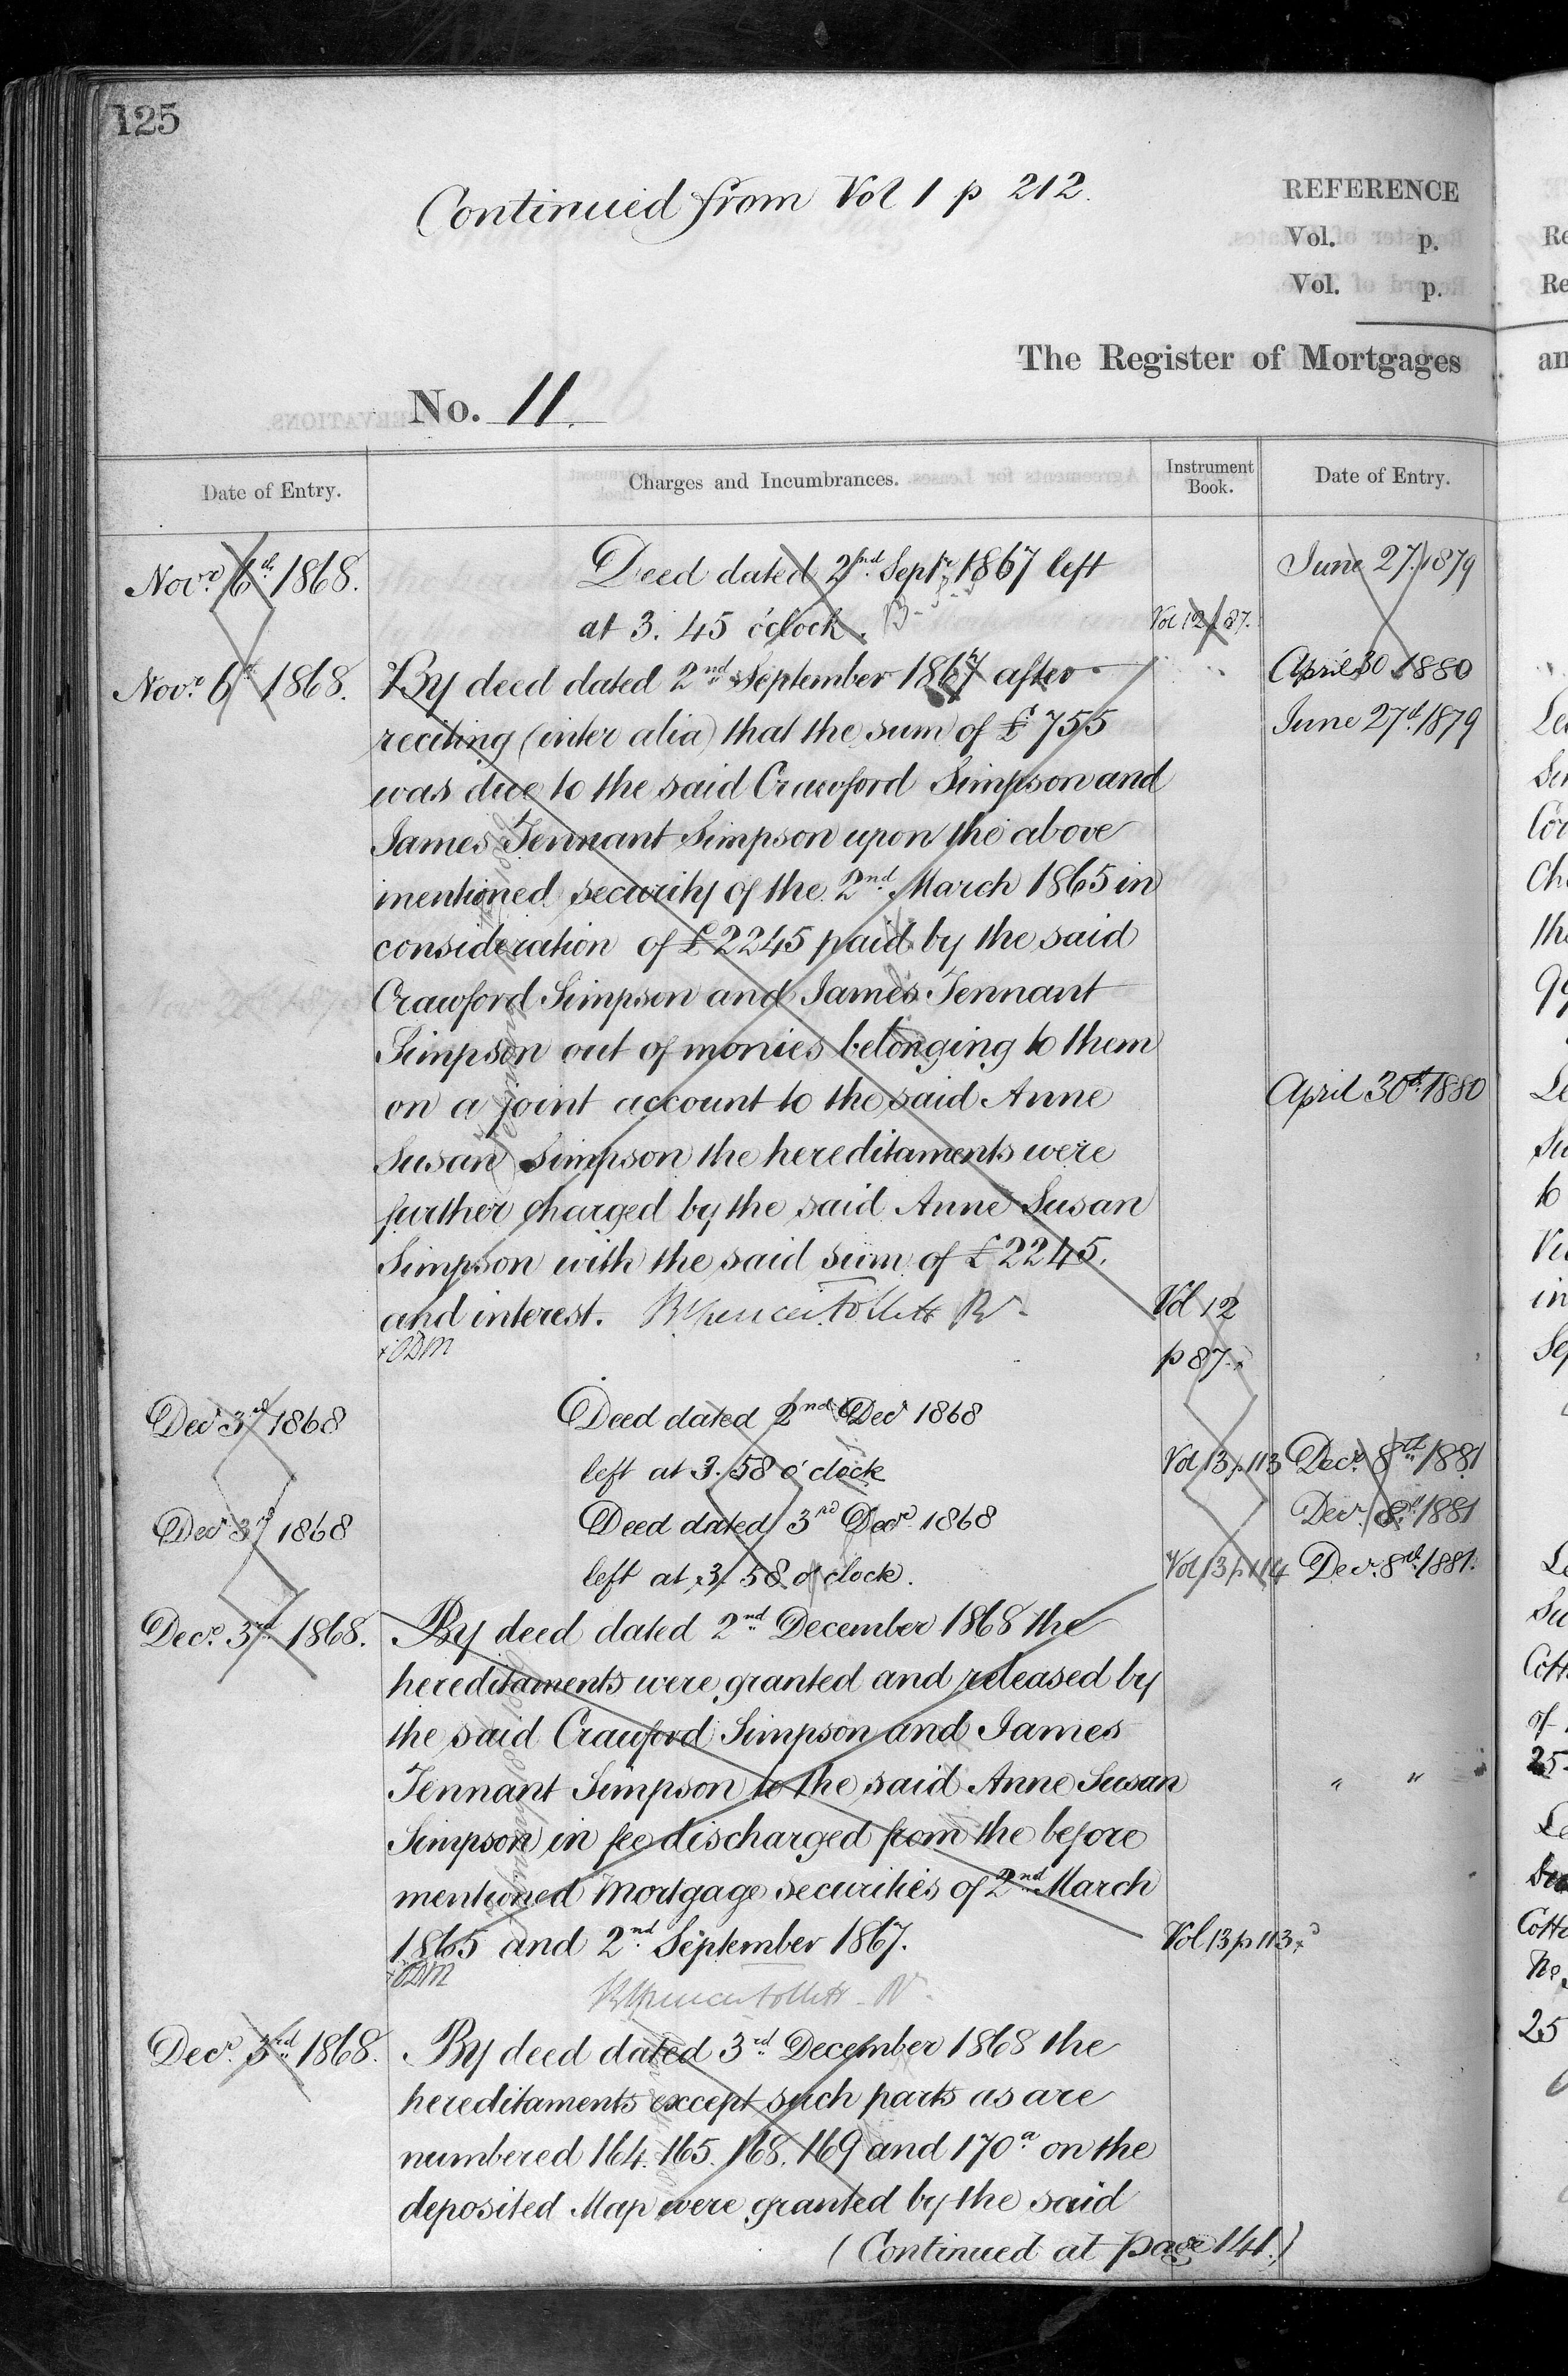 125
Continued from Vol 1 p 212.
REFERENCE
Vol. p.
Vol. p.
The Register of Mortgages
No. 11.
Date of Entry.
Charges and Incumbrances.
Instrument Book.
Date of Entry.
Novr. 6th 1868.
Deed dated 2nd Septr. 1867 left
June 27. 1879
at 3. 45 o'clock.
Vol 12 p 87.
Novr. 6th 1868.
By deed dated 2nd September 1867 after
April 30 1880
reciting (inter alia) that the sum of £755
June 27th 1879
was due to the said Crawford Simpson and
James Tennant Simpson upon the above
mentioned security of the 2nd March 1865 in
consideration of £2245 paid by the said
Crawford Simpson and James Tennant
Simpson out of monies belonging to them
on a joint account to the said Anne
April 30th 1880
Susan Simpson the hereditaments were
further charged by the said Anne Susan
Simpson with the said sum of £2245.
and interest.
Vol 12
p 87.
Decr 3rd 1868
Deed dated 2nd Decr 1868
left at 3. 58 o'clock
Vol 13 p 113
Decr. 8th 1881
Decr 3rd 1868
Deed dated 3rd Decr. 1868
Decr. 8th 1881
left at 3. 58 o'clock.
Vol 13 p 114
Decr. 8th 1881.
Decr. 3rd 1868.
By deed dated 2nd December 1868 the
hereditaments were granted and released by
the said Crawford Simpson and James
Tennant Simpson to the said Anne Susan
" "
Simpson in fee discharged from the before
mentioned Mortgage securities of 2nd March
1865 and 2nd September 1867.
Vol 13 p 113
Decr. 3rd 1868.
By deed dated 3rd December 1868 the
hereditaments except such parts as are
numbered 164. 165. 168. 169 and 170a on the
deposited Map were granted by the said
(Continued at page 141.)